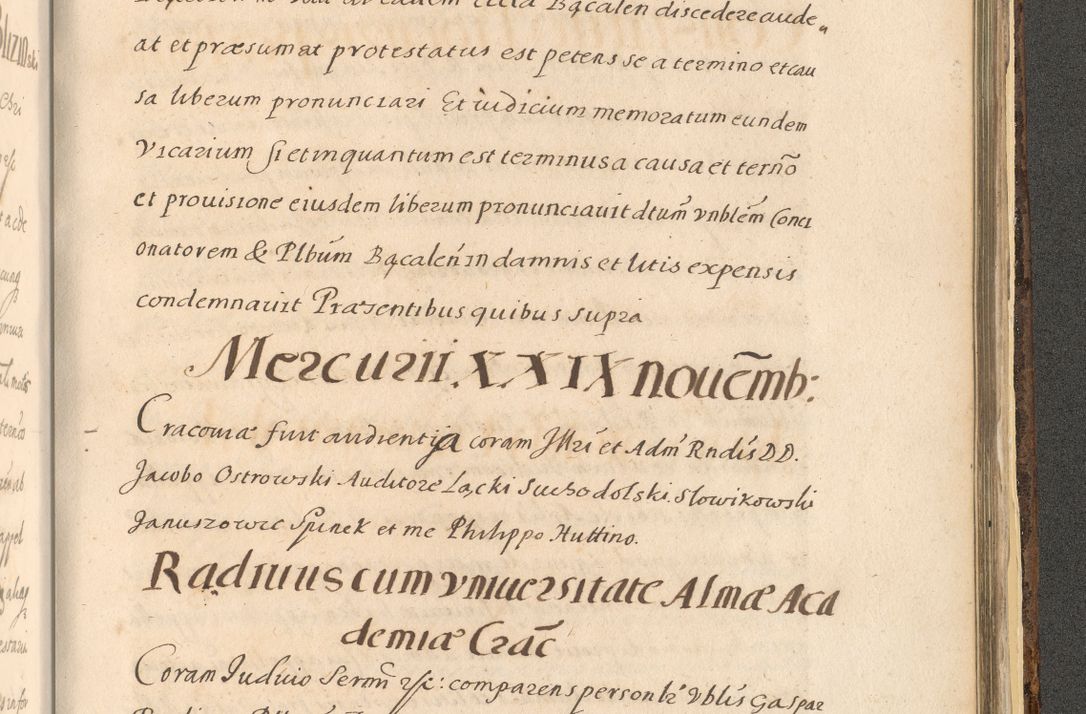 Bącalen discedere aude
at et præsumat protestatus est petens se a termino et cau
sa liberum pronunciari Et iudicium memoratum eundem
Vicarium si et inquantum est terminus a causa et termo
et prouisione eiusdem liberum pronunciauit dtum vnblem Conci
onatorem & Plbum Bącalen in damnis et litis expensis
condemnauit Præsentibus quibus supra
Mercurii XXIX nouemb:
Cracouiæ fuit audientia coram Illri et Adm Rndis DD.
Jacobo Ostrowski Auditore Łącki Suchodolski. Slowikowski
Januszowic Spinek et me Philippo Huttino.
Radiuius cum vniuersitate Almæ Aca
demiæ Crac
Coram Iudicio Sermi rsc: comparens personlr Vblis Gaspar